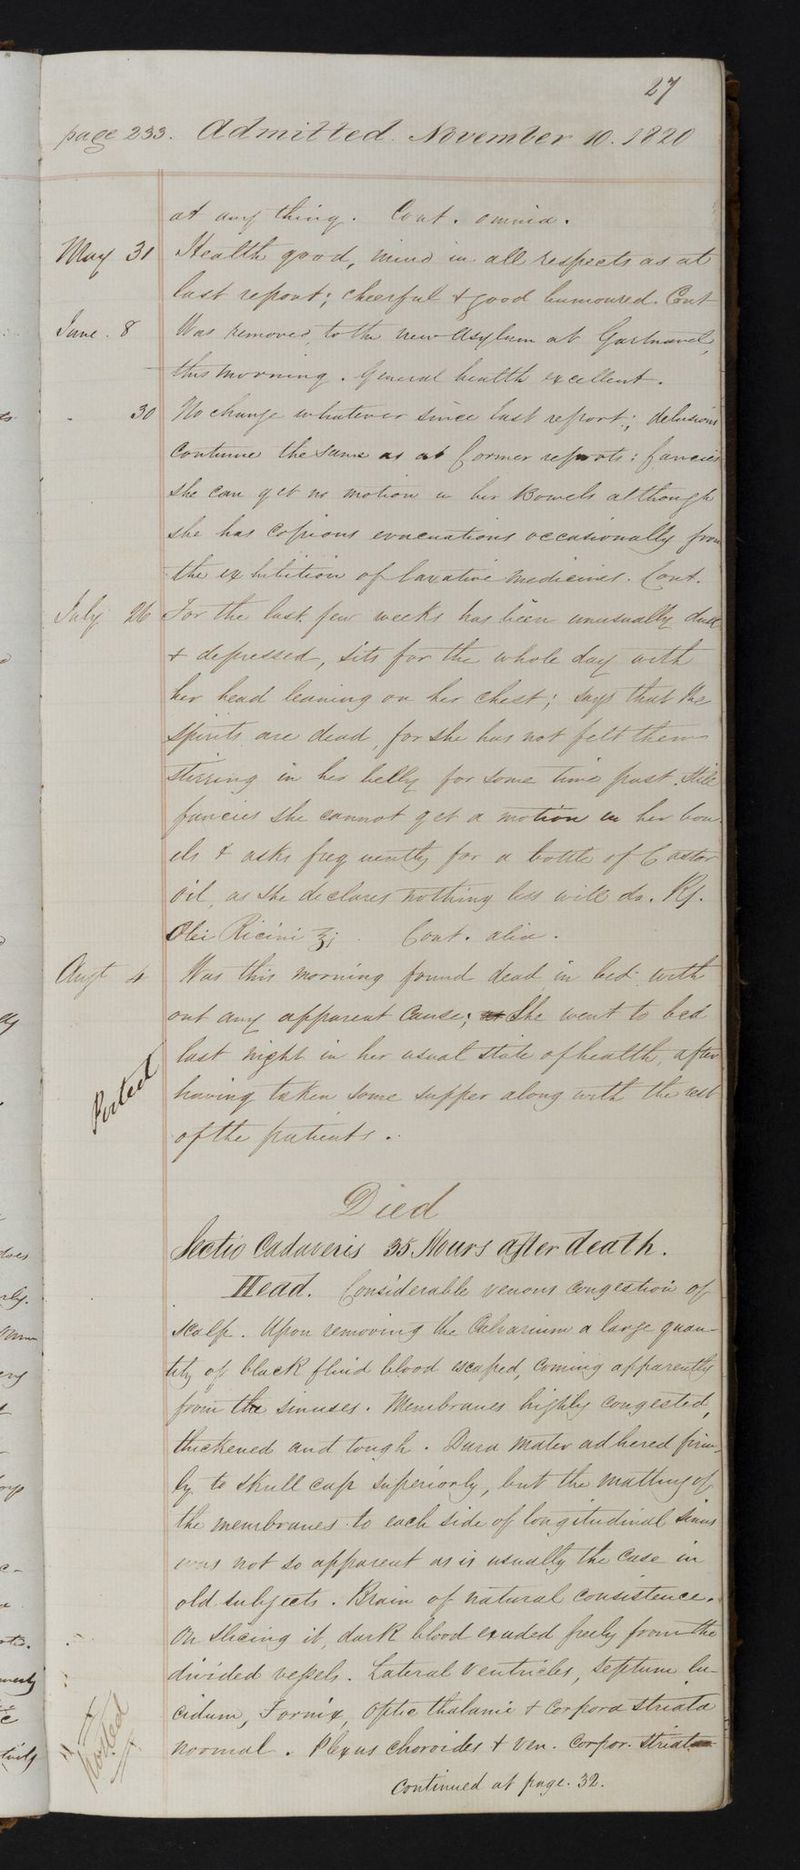 27
page 233. Admitted. November 10. 1820
at any thing. Cont. omnia.
May 31 Health good, mind in all respects as at
last report; cheerful & good humoured. Cont
June. 8 Was removed to the new Asylum at Gartnavel,
this morning. General health excellent.
30 No change whatever since last report; delusions
continue the same as at former reports: fancies
she can get no motion in her Bowels although
she has copious evacuations occasionally from
the exhibition of laxative medicines. Cont.
July 26 For the last few weeks has been unusually dull
& depressed, sits for the whole day with
her head leaning on her chest; says that the
spirits are dead, for she has not felt them
stirring in her belly for some time past. Still
fancies she cannot get a motion in her bow-
els & asks frequently for a bottle of Castor
oil, as she declares nothing less will do. Rj.
Olei Ricini ℥j. Cont. alia.
Augt 4 Was this morning found dead in bed with
out any apparent cause; She went to bed
last night in her usual state of health, after
having taken some supper along with the rest
of the patients.
Posted
Died
Sectio Cadaveris 35 Hours after death.
Head. Considerable venous congestion of
scalp. Upon removing the Calvarium a large quan-
tity of black fluid blood escaped, coming apparently
from the sinuses. Membranes highly congested,
thickened and tough. Dura Mater adhered firm-
ly to skull cap superiorly, but the matting of
the membranes to each side of longitudinal sinus
was not so apparent as is usually the case in
old subjects. Brain of natural consistence.
On slicing it, dark blood exuded freely from the
divided vessels. Lateral Ventricles, Septum lu-
cidum, Fornix, Optic thalami & Corpora Striata
normal. Plexus Choroides & Ven. Corpor. Striat
Posted
Continued at page. 32.